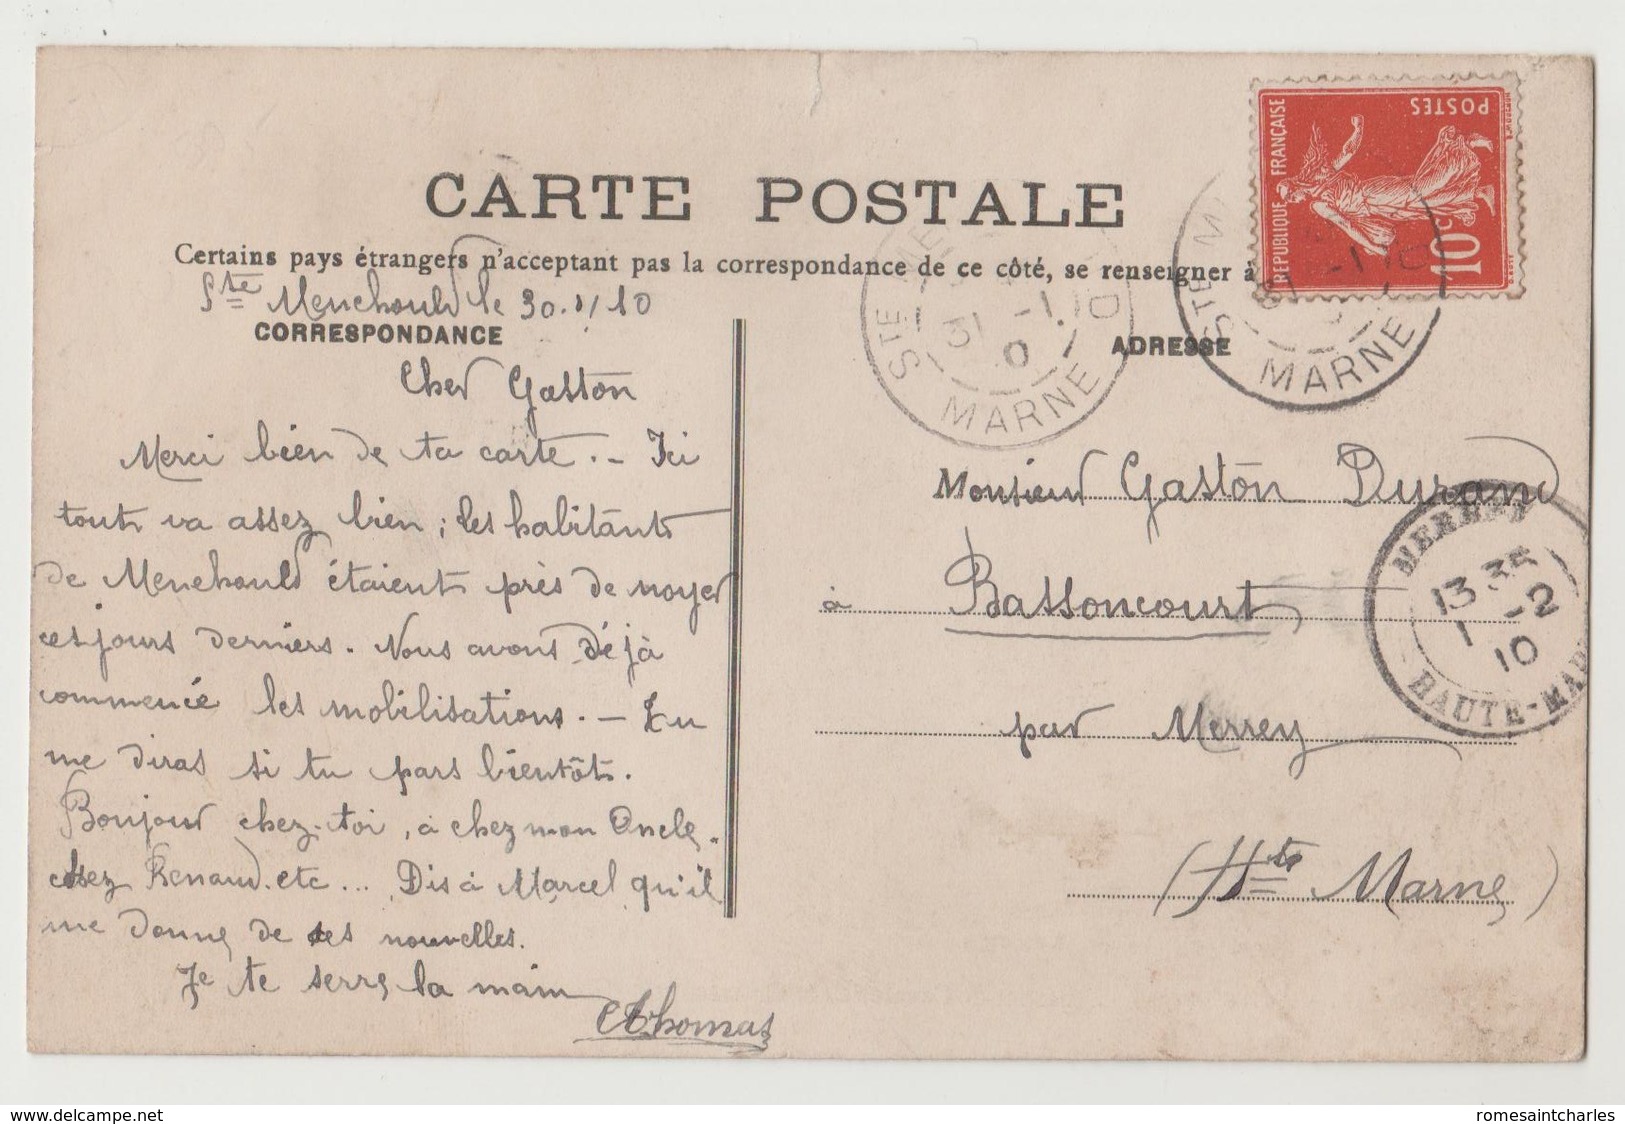 CARTE POSTALE
Certains pays étrangers n'acceptant pas la correspondance de ce côté, se renseigner à
Ste Menehould le 30.1/10
CORRESPONDANCE
Cher Gaston
Merci bien de ta carte. — Ici
tout va assez bien ; les habitants
de Menehould étaient près de noyer
ces jours derniers. Nous avons déjà
commencé les mobilisations. — Tu
me diras si tu pars bientôt.
Bonjour chez-toi, à chez mon Oncle,
chez Renaud. etc... Dis à Marcel qu'il
me donne de ses nouvelles.
Je te serre la main
Thomas
ADRESSE
Monsieur Gaston Durand
à Bassoncourt
par Merrey
(Hte Marne)
REPUBLIQUE FRANÇAISE
POSTES
10c
STE ME
31 -1 10
MARNE
STE M
-1 10
MARNE
MERREY
13 35
1 -2
10
HAUTE-MAR
www.delcampe.net
romesaintcharles